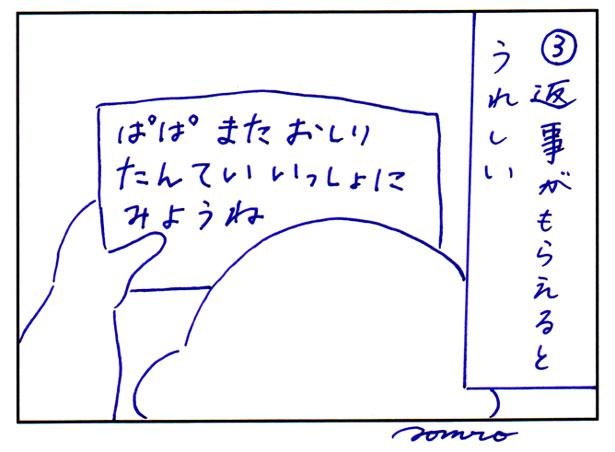 ③返事がもらえると
うれしい
ぱぱ また おしり
たんてい いっしょに
みようね